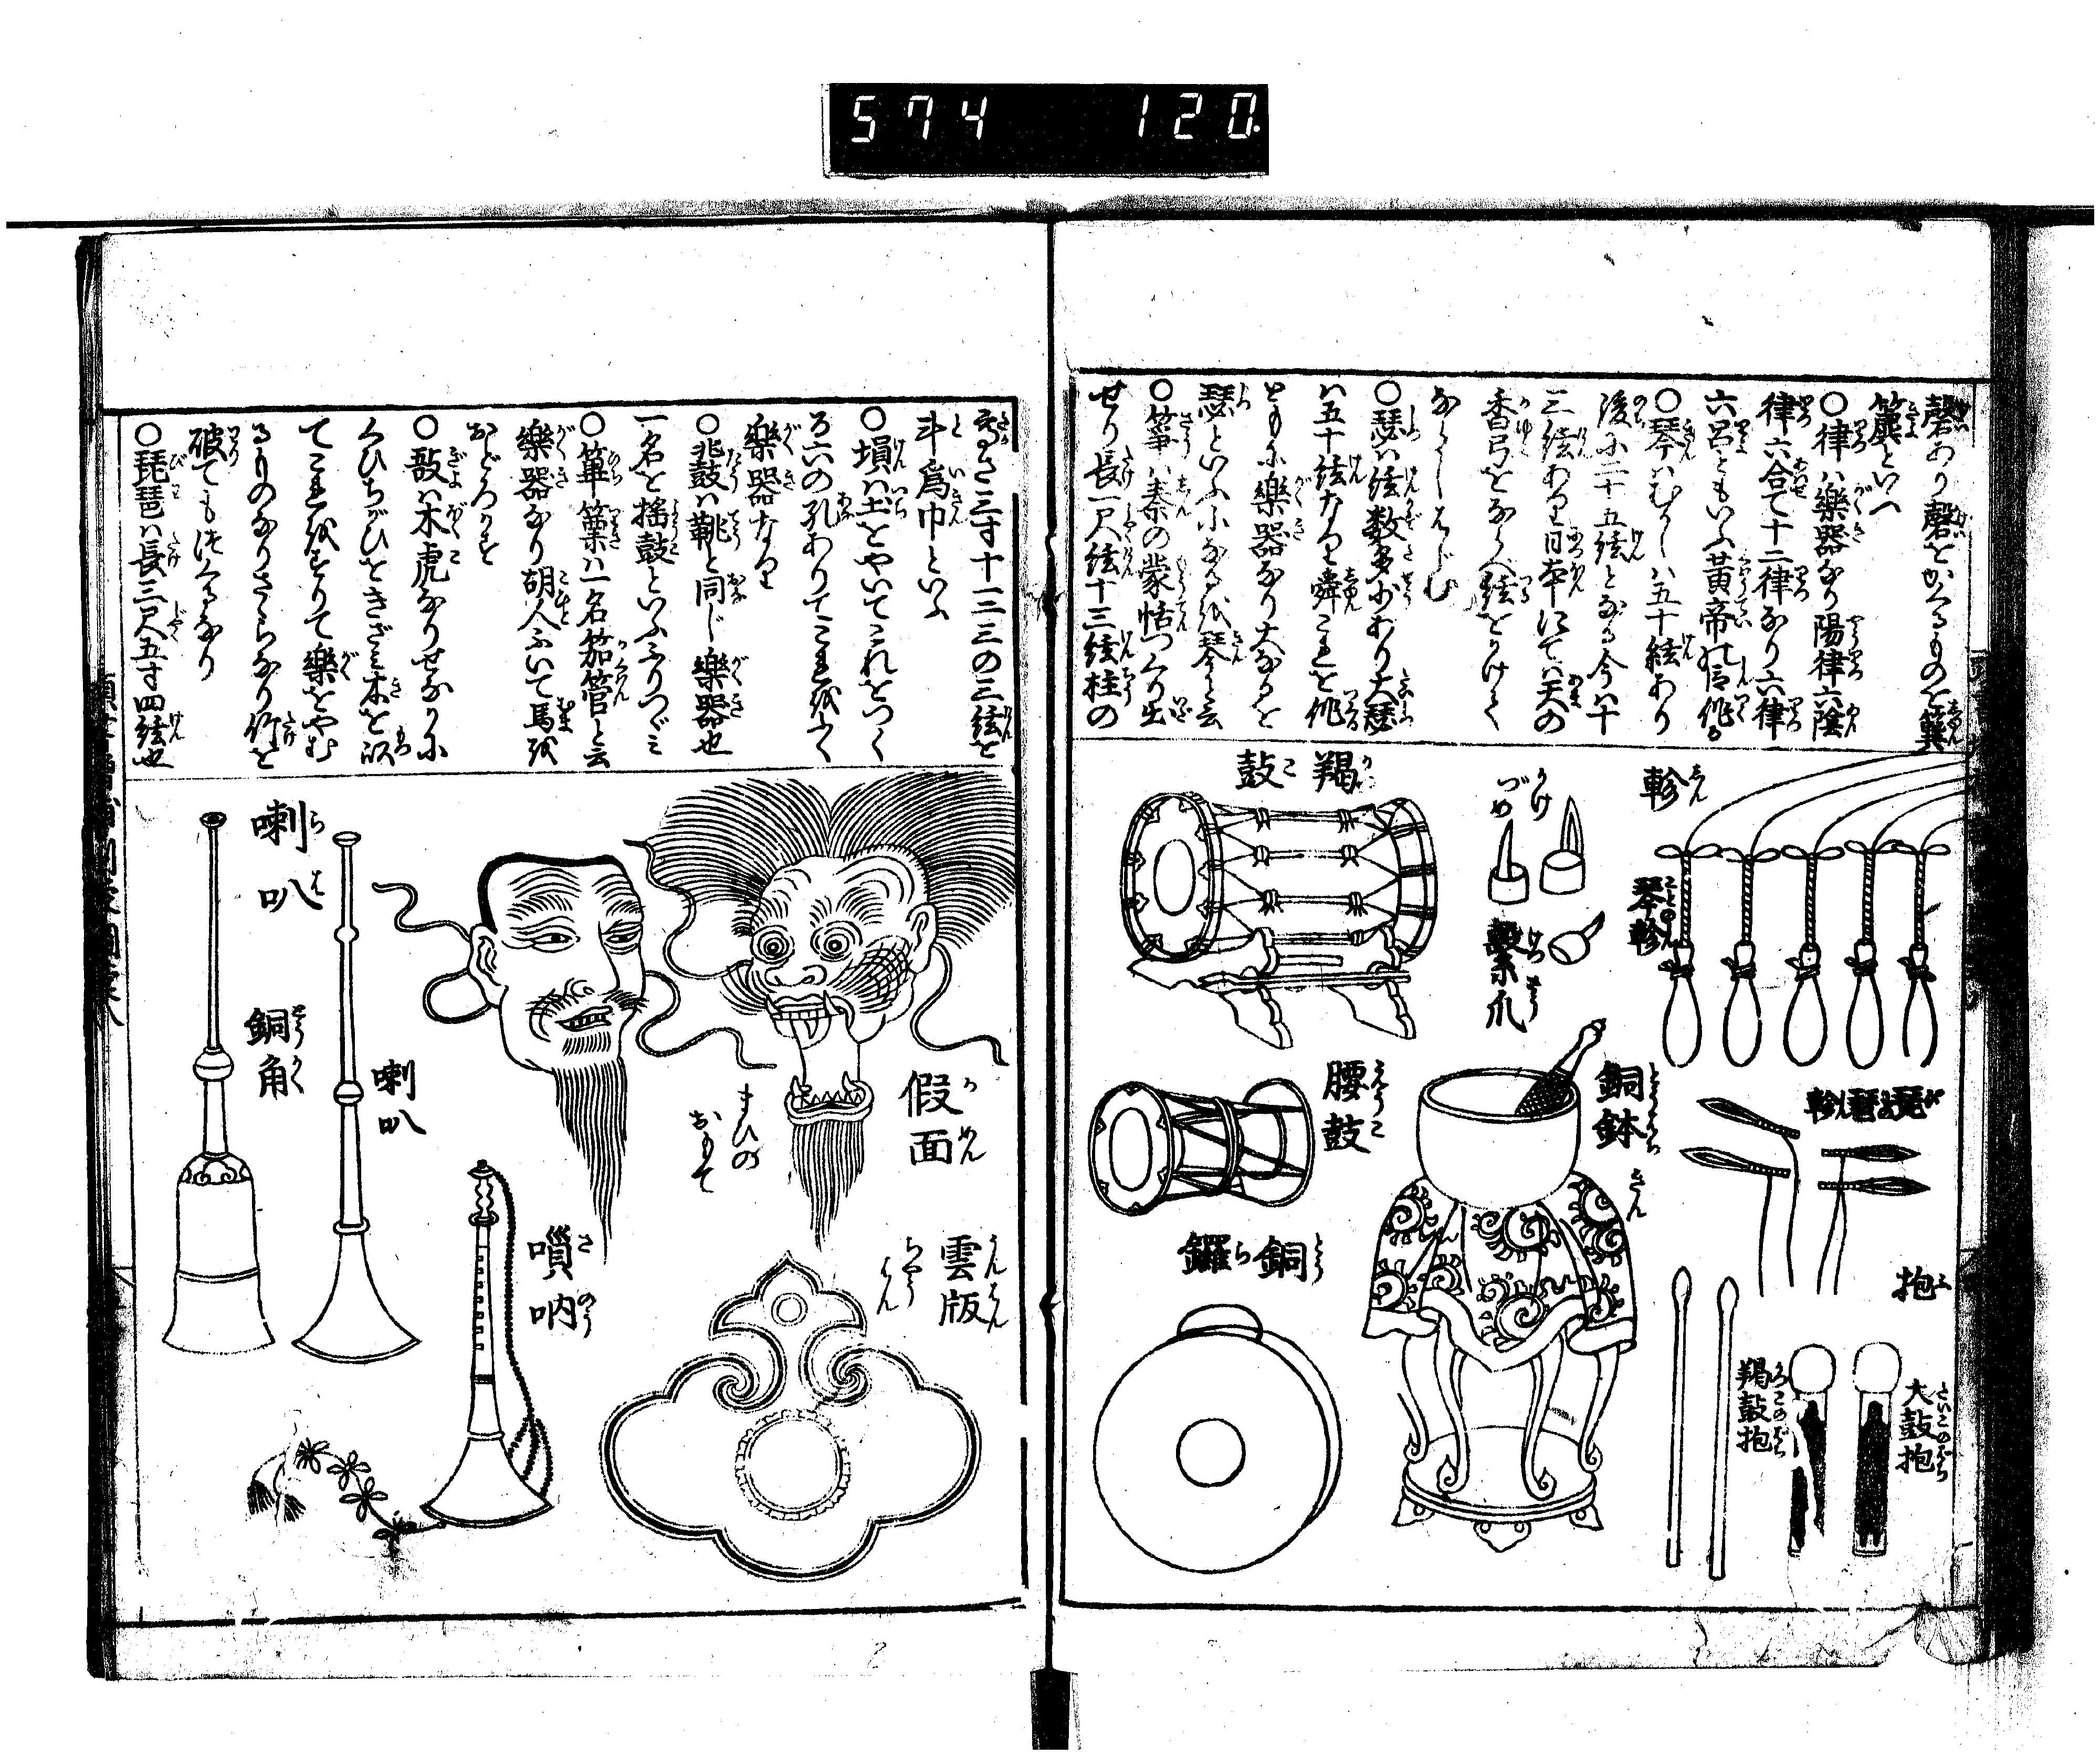 574 120
磬あり磬をかくるものを簨
簴といへ
〇律ハ樂器なり陽律六陰
律六合て十二律なり六律
六呂ともいふ黃帝の伶作る
〇琴ハむかしハ五十絃あり
後に二十五絃となる今ハ十
三絃あり日本にてハ天の
香弓をならべ絃をかけて
なくしはじむ
〇瑟ハ絃数多少あり大瑟
ハ五十絃なり舜これを作る
ともに樂器なり大なるを
瑟といふ小なるを琴と云
〇箏ハ秦の蒙恬つくり出
せり長一尺絃十三絃柱の
軫
琴軫
琵琶軫
かけづめ
繫爪
羯鼓
腰鼓
銅鈸
きん
銅鑼
枹
大鼓枹
羯鼓枹
高さ三寸十二三の三絃を
斗爲巾といふ
〇塤ハ土をやいてこれをつく
る六の孔ありてこれをふく
樂器なり
〇兆鼓ハ鞉と同じ樂器也
一名を搖鼓といふふりつゞミ
〇篳篥ハ一名笳管と云
樂器なり胡人ふいて馬を
おどろかす
〇敔ハ木虎なりせなかに
くひちがひをきざミ木を以
てこれをすりて樂をやむ
るりのなりさらなり竹を
破ても作くるなり
〇琵琶ハ長三尺五寸四絃也
假面
まひのおもて
雲版
ちやうはん
喇叭
喇叭
銅角
嗩吶